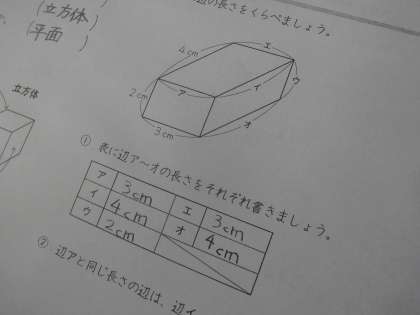 辺の長さをくらべましょう。
(立方体)
(平面)
立方体
4cm
エ
2cm
ア
イ
ウ
3cm
オ
① 表に辺ア〜オの長さをそれぞれ書きましょう。
ア 3cm エ 3cm
イ 4cm オ 4cm
ウ 2cm
② 辺アと同じ長さの辺は、辺イ